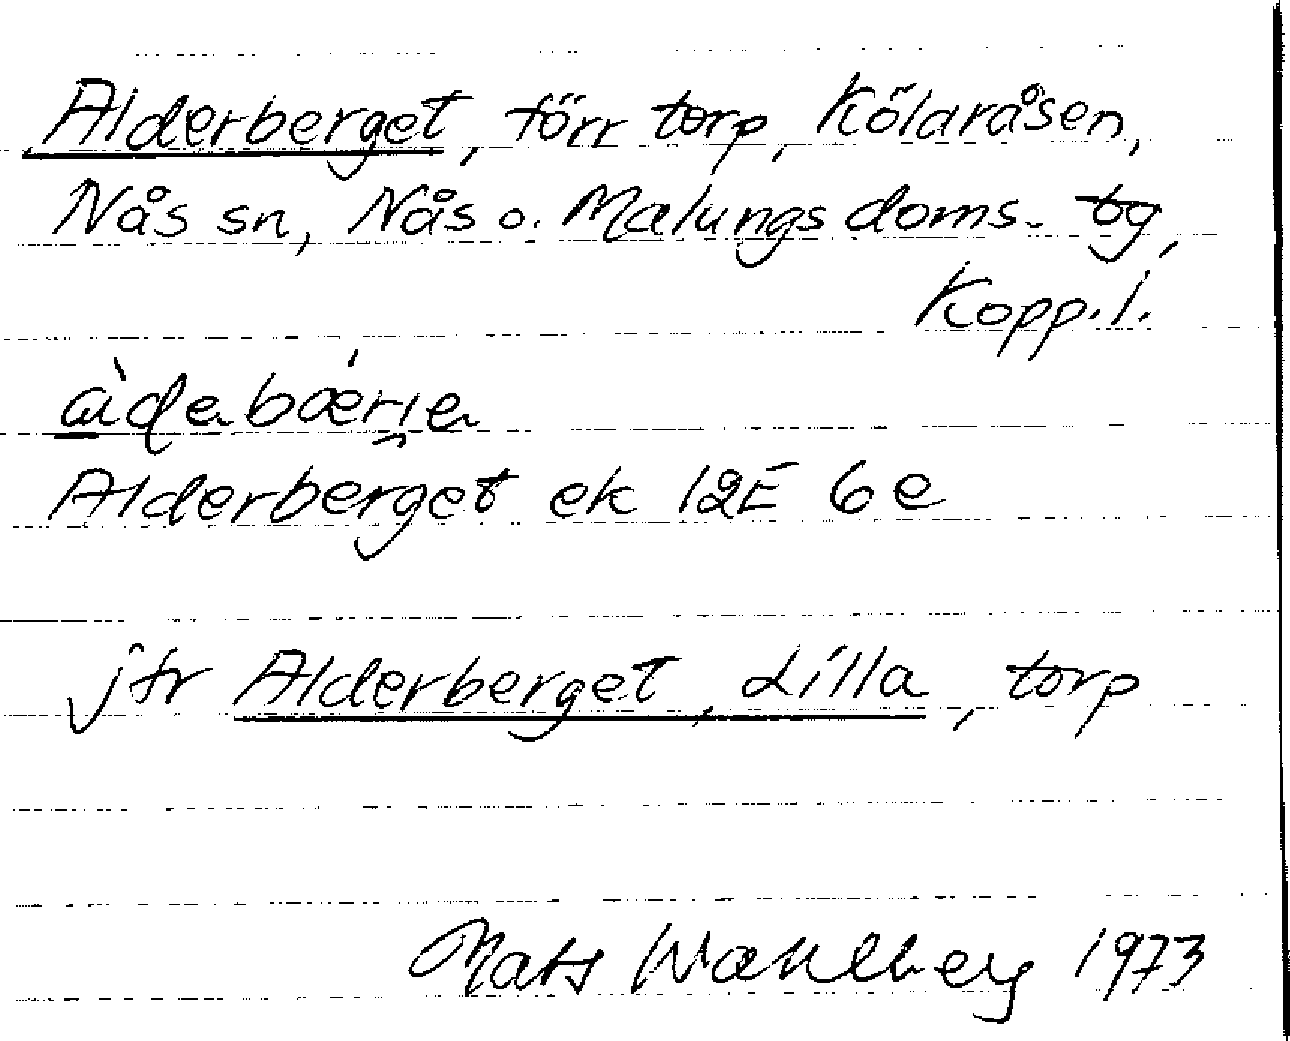 Alderberget, förr torp, Kölaråsen,
Nås sn, Nås o. Malungs doms. tg,
Kopp. l.
Alderberget ek 12E 6e
jfr Alderberget, Lilla, torp
Mats Wahlberg 1973